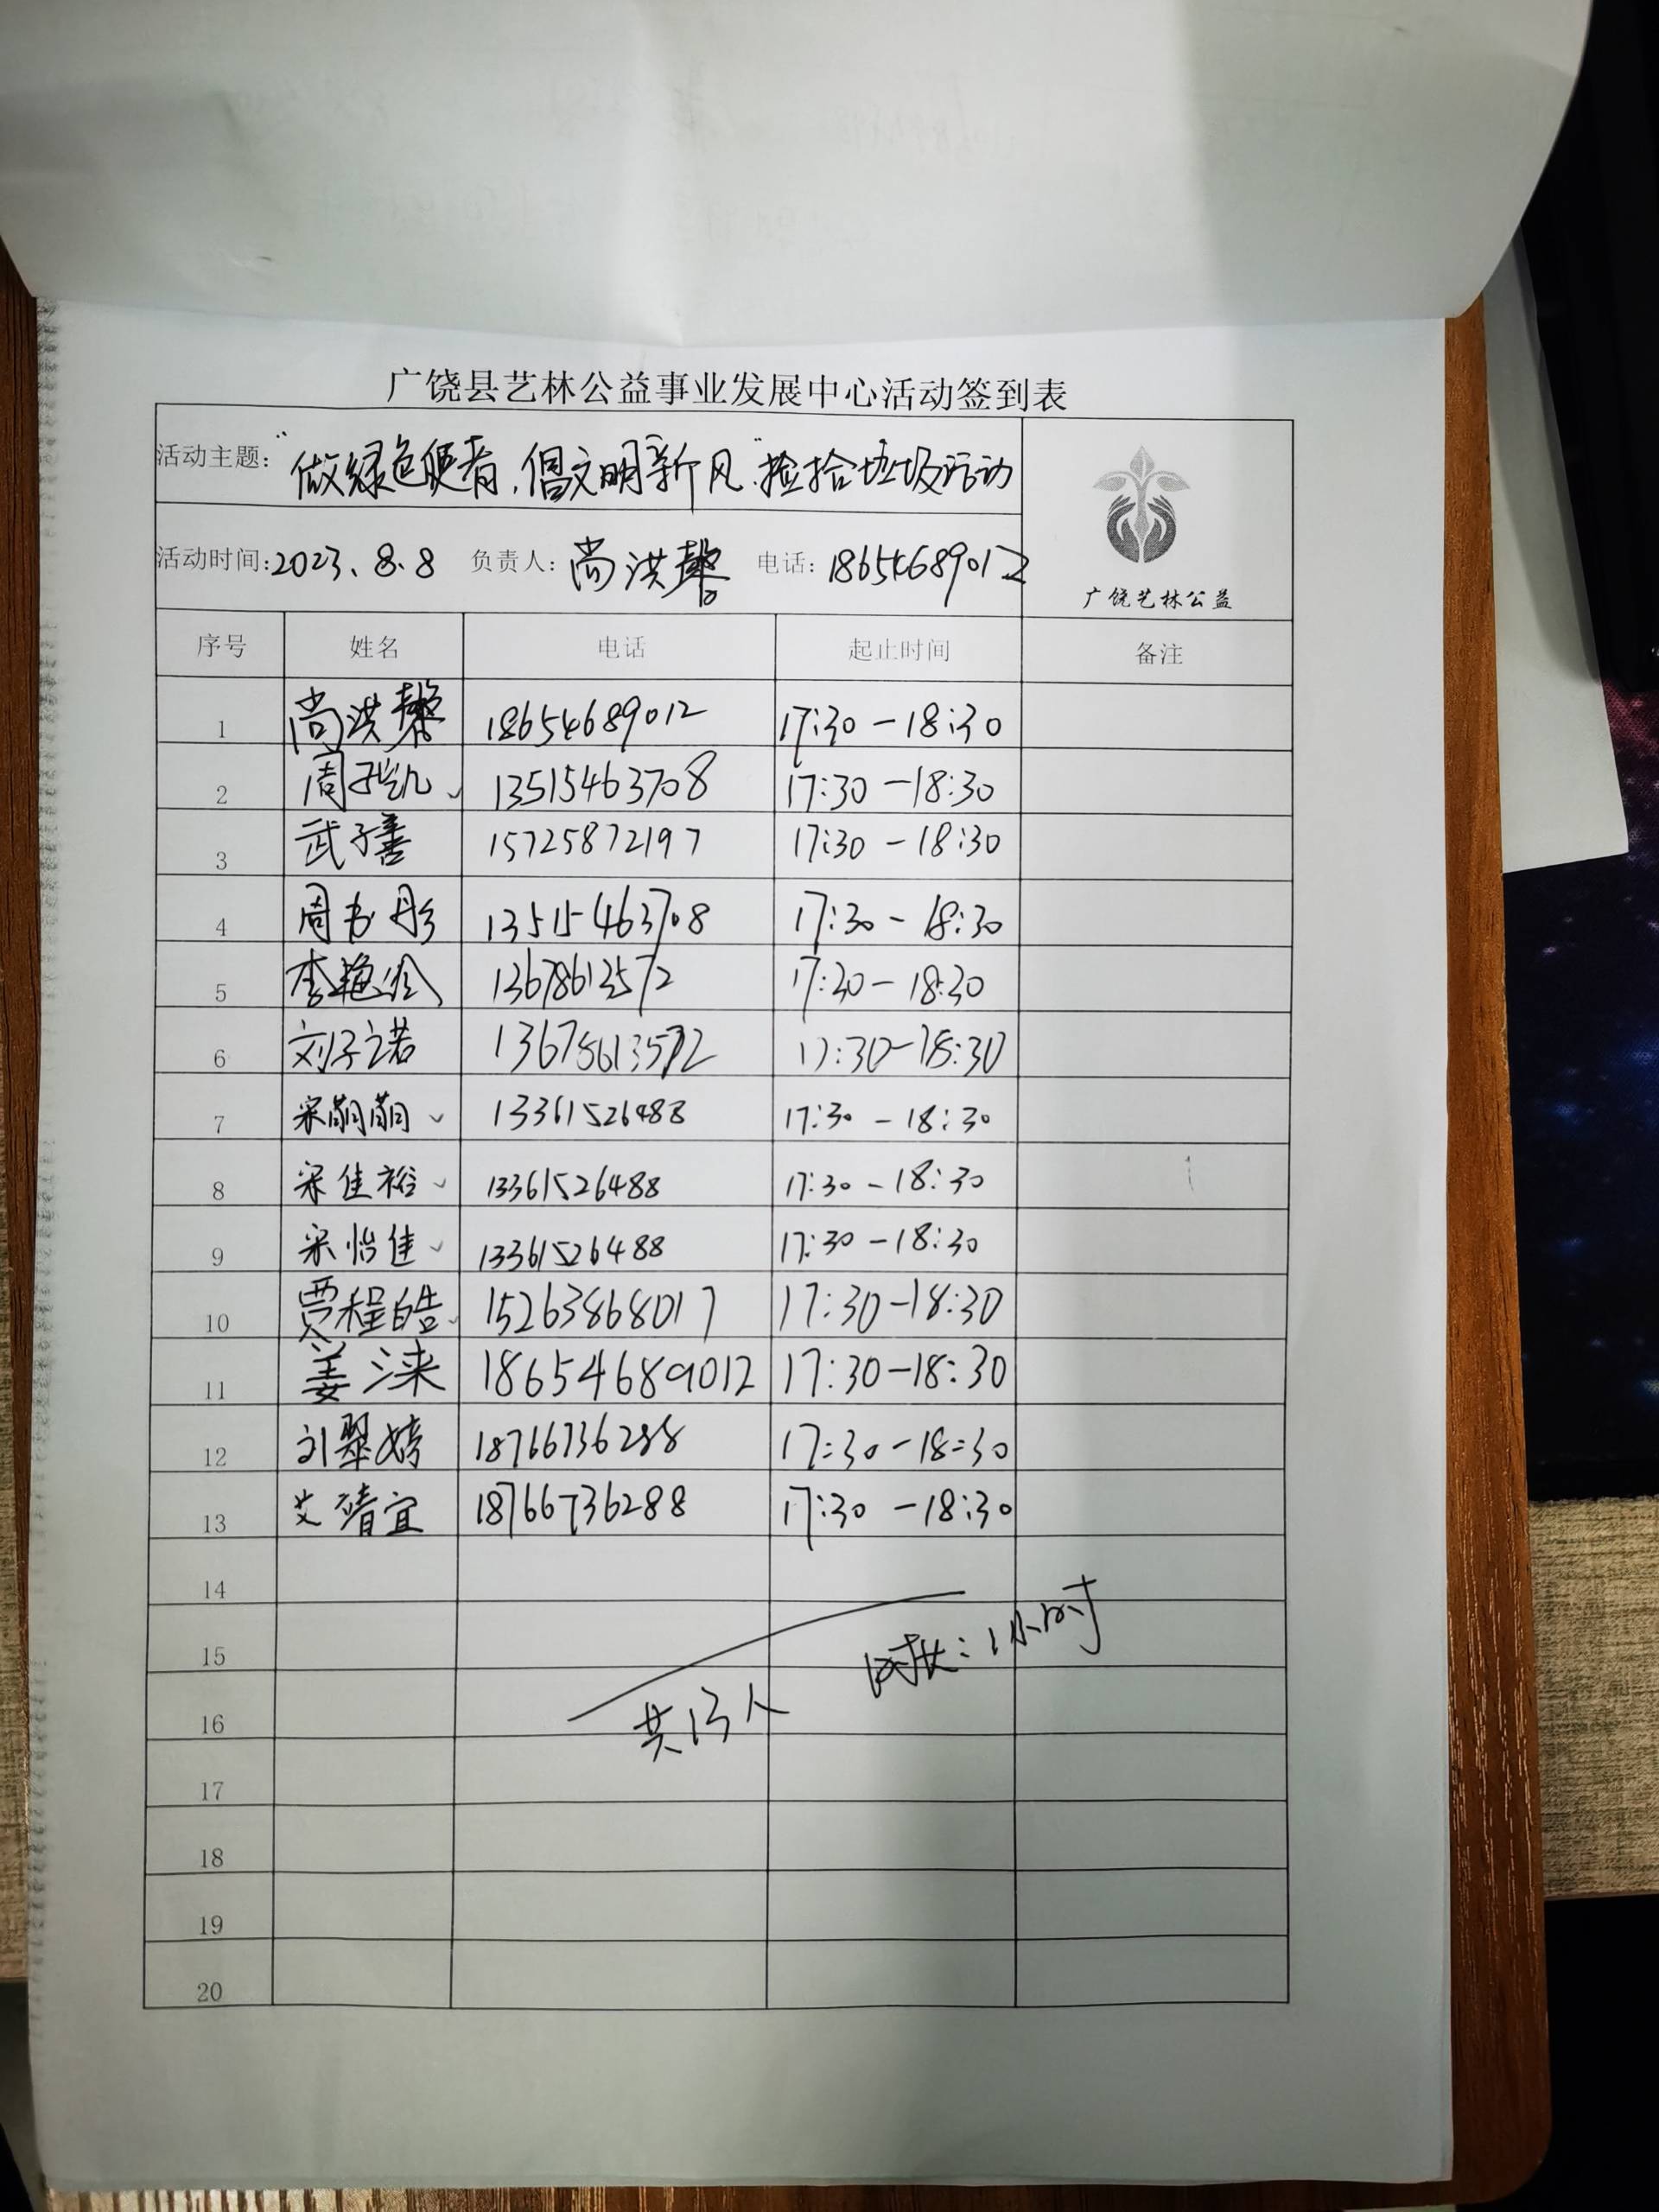 广饶县艺林公益事业发展中心活动签到表
活动主题：“做绿色使者，倡文明新风”捡拾垃圾活动
活动时间：2023.8.8 负责人：尚洪馨 电话：18654689012
广饶艺林公益
序号 姓名 电话 起止时间 备注
1 尚洪馨 18654689012 17:30－18:30
2 周子凯 13515463708 17:30－18:30
3 武子善 15725872197 17:30－18:30
4 周书彤 13515463708 17:30－18:30
5 李艳伶 13678613572 17:30－18:30
6 刘子诺 13678613572 17:30－18:30
7 宋萌萌 13361526488 17:30－18:30
8 宋佳裕 13361526488 17:30－18:30
9 宋怡佳 13361526488 17:30－18:30
10 贾程皓 15263868017 17:30－18:30
11 姜涞 18654689012 17:30－18:30
12 刘翠婷 18766736288 17:30－18:30
13 艾靖宜 18766736288 17:30－18:30
14
15 时长：1小时
16 共13人
17
18
19
20